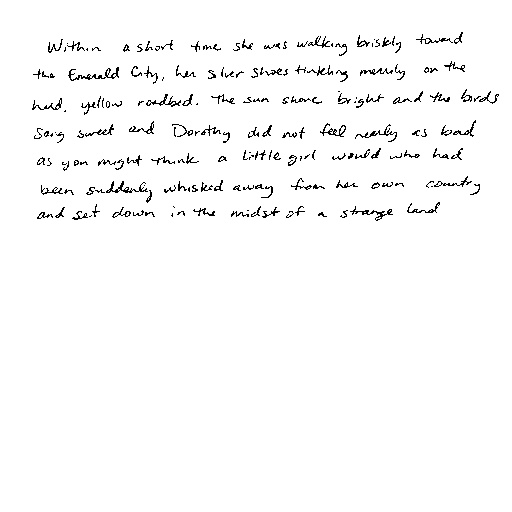 Within a short time she was walking briskly toward
the Emerald City, her silver shoes tinkling merrily on the
hard, yellow roadbed. The sun shone bright and the birds
sang sweet and Dorothy did not feel nearly as bad
as you might think a little girl would who had
been suddenly whisked away from her own country
and set down in the midst of a strange land